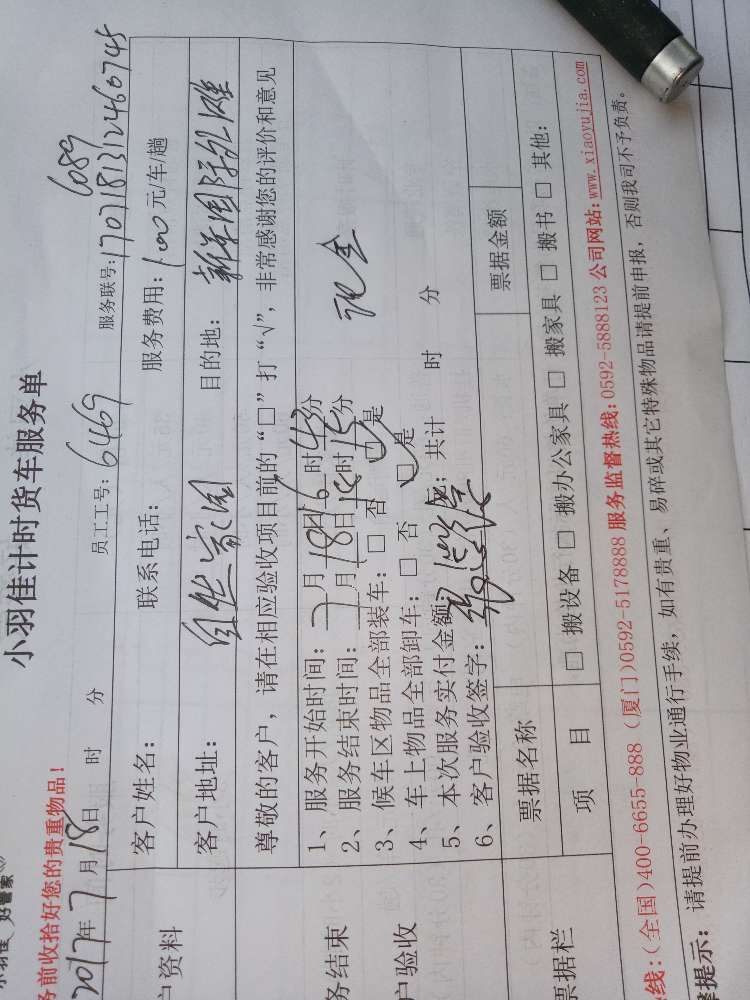 小羽佳计时货车服务单
务前收拾好您的贵重物品！
2017年7月18日 时 分
员工工号：6469
服务联号：1707181312460745
6089
户资料
客户姓名：
联系电话：
服务费用：100元/车/趟
客户地址：自然家园
目的地：
尊敬的客户，请在相应验收项目前的“□”打“√”，非常感谢您的评价和意见
务结束
户验收
1、服务开始时间：7月18日16时43分
2、服务结束时间：7月18日18时15分
3、候车区物品全部装车：□ 否 □ 是
4、车上物品全部卸车：□ 否 □ 是
5、本次服务实付金额： 共计 时 分
现金
6、客户验收签字：
票据栏
票据名称
票据金额
项 目
□ 搬设备 □ 搬办公家具 □ 搬家具 □ 搬书 □ 其他：
线：（全国）400-6655-888 （厦门）0592-5178888 服务监督热线：0592-5888123 公司网站：www.xiaoyujia.com
提示：请提前办理好物业通行手续，如有贵重、易碎或其它特殊物品请提前申报，否则我司不予负责。